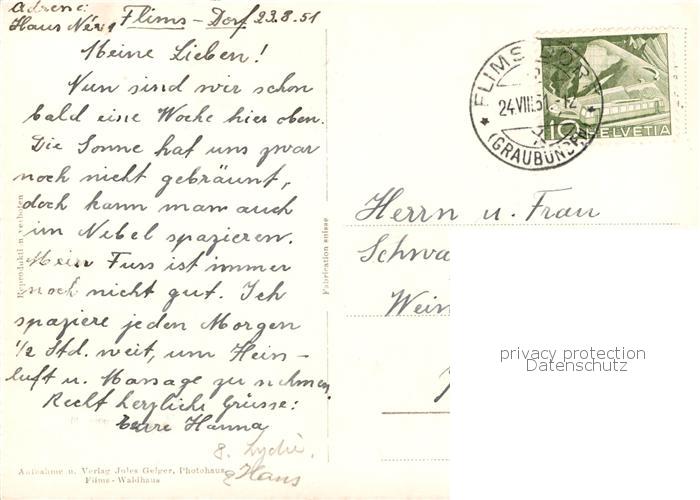 Adresse:
Haus Nérig Flims-Dorf 23.8.51
Meine Lieben!
Nun sind wir schon
bald eine Woche hier oben.
Die Sonne hat uns zwar
noch nicht gebräunt,
doch kann man auch
im Nebel spazieren.
Mein Fuss ist immer
noch nicht gut. Ich
spaziere jeden Morgen
1/2 Std. weit, um Hein-
luft u. Massage zu nehmen.
Recht herzliche Grüsse:
Eure Hanna
g. Lydia.
& Hans
Aufnahme u. Verlag Jules Geiger, Photohaus
Flims-Waldhaus
Reproduktion verboten
Fabrication suisse
FLIMS DORF
24.VIII.51
(GRAUBÜNDEN)
10 HELVETIA
Herrn u. Frau
Schwa
Wein
privacy protection
Datenschutz